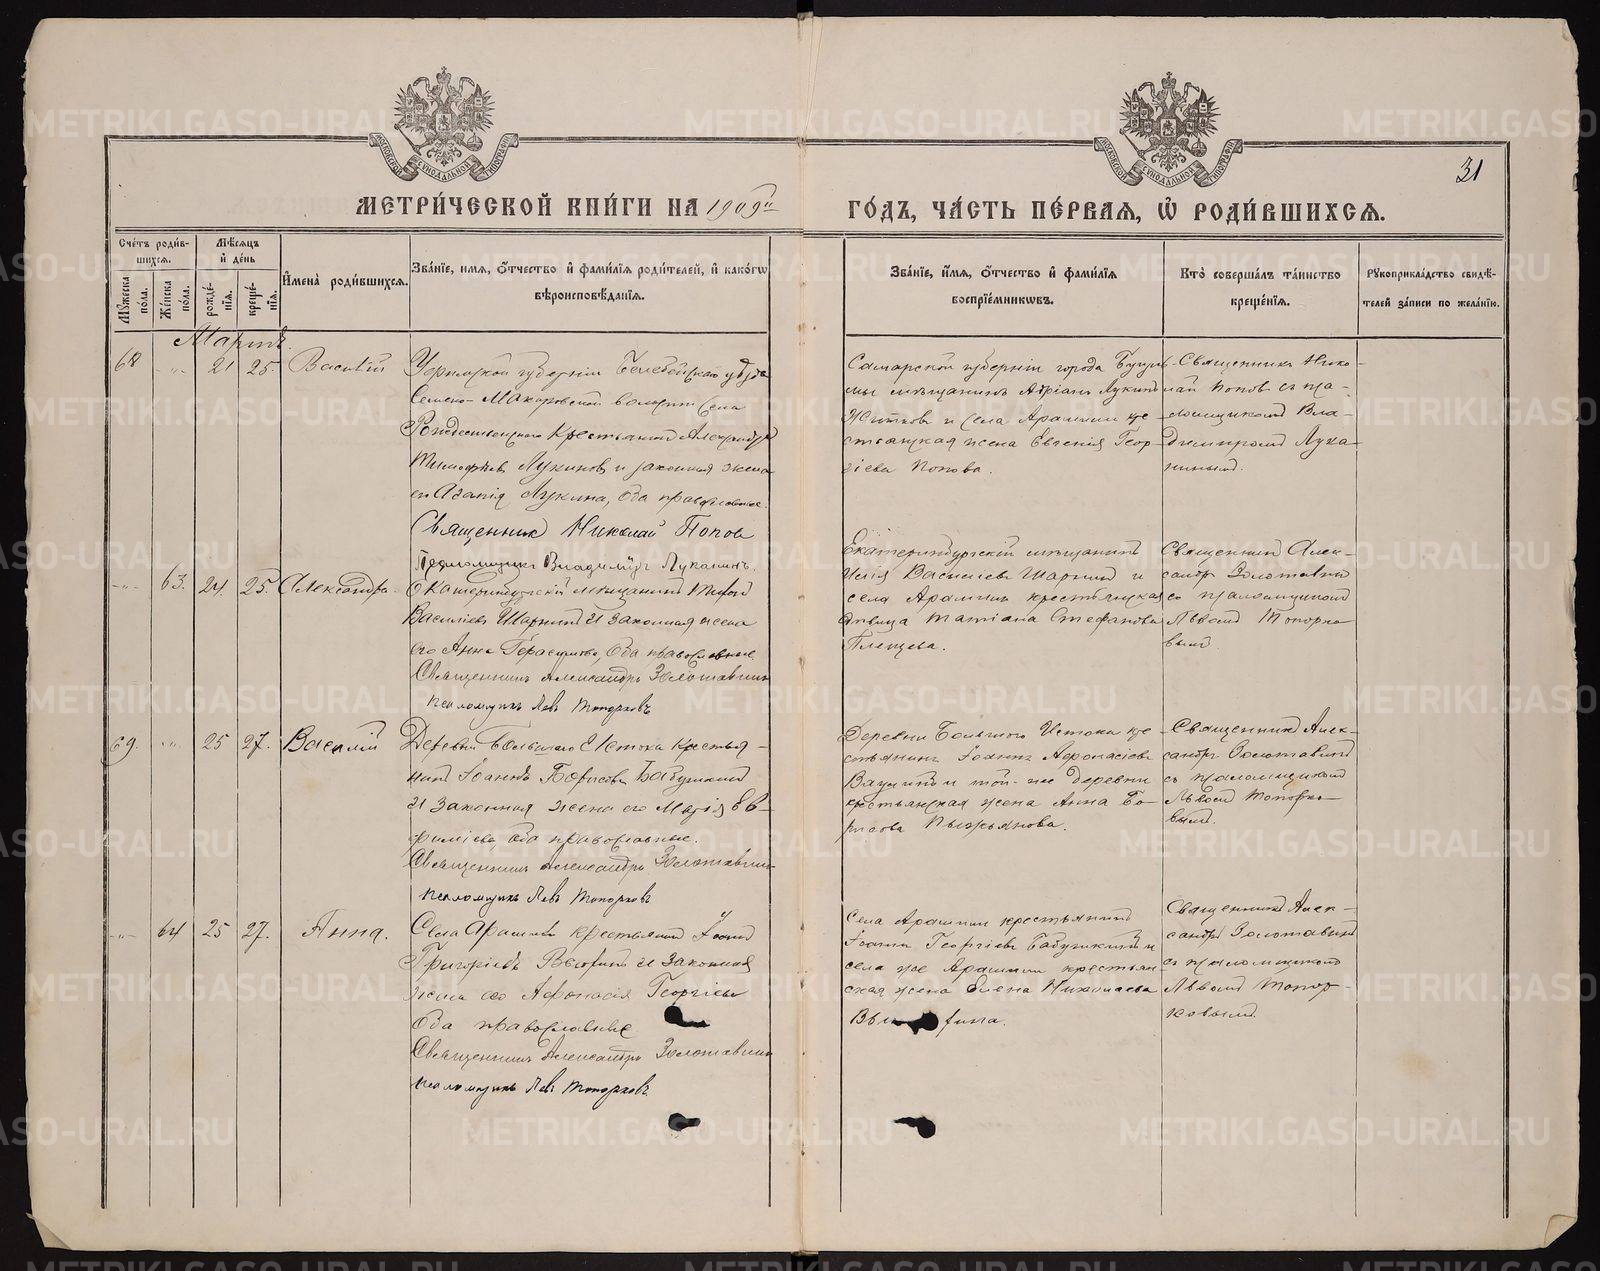 МЕТРИ́ЧЕСКОЙ КНИ́ГИ НА 1909й
ГО́ДЪ, ЧА́СТЬ ПЕ́РВАЯ, Ѡ РОДИ́ВШИХСѦ.
31
Счетъ роди́в-
шихсѧ.
Мѣ́сѧцъ
и҆ де́нь
Мꙋжеска пола.
Же́нска по́ла.
рожде́-
нїѧ.
креще́-
нїѧ.
И҆мена̀ роди́вшихсѧ.
Зва́нїе, имѧ, ѻ҆́тчество и҆ фами́лїѧ роди́телей, и҆ како́гѡ
вѣроисповѣ́данїѧ.
Зва́нїе, и҆́мѧ, ѻ҆́тчество и҆ фами́лїѧ
воспрїе́мникѡвъ.
Кто̀ соверша́лъ та́инство
креще́нїѧ.
Рꙋкоприкла́дство свидѣ́-
телей за́писи по жела́нїю.
Мартъ.
68 -"- 21 25. Василій
Уфимской губерніи Белебейскаго уѣзда
Семено-Макаровской волости села
Рождественскаго крестьянинъ Александръ
Тимофѣевъ Лукинов и законная жена
его Агапія Лукина, оба православные.
Священник Николай Попов
Псаломщикъ Владиміръ Луканинъ.
Самарской губерніи города Бугуль-
мы мѣщанинъ Адріанъ Лукинъ
Житков и села Арамили кре-
стьянская жена Евгенія Геор-
гіева Попова.
Священникъ Нико-
лай Попов съ пса-
ломщикомъ Вла-
димиромъ Лука-
нинымъ.
-"- 63. 24 25. Александра.
Екатеринбургскій мѣщанинъ
Васильевъ Шаринъ и законная жена
его Анна Герасимова, оба православные.
Священникъ Александръ Золотавинъ
псаломщикъ Левъ Топорковъ
Екатеринбургскій мѣщанинъ
Илія Васильевъ Шаринъ и
села Арамили крестьянская
дѣвица Татіана Стефанова
Плещева.
Священникъ Алек-
сандръ Золотавинъ
со псаломщикомъ
Львомъ Топорко-
вымъ
69. -"- 25 27. Василій
Деревни Большаго Истока крестья-
нинъ Іоаннъ Борисовъ Бабушкинъ
и законная жена его Марія Ев-
фиміева, оба православные.
Священникъ Александръ Золотавинъ
псаломщикъ Левъ Топорковъ
Деревни Большого Истока кре-
стьянинъ Іоаннъ Афонасіевъ
и той-же деревни
крестьянская жена Анна Бо-
рисова Пырьянова.
Священникъ Алек-
сандръ Золотавинъ
съ псаломщикомъ
Львомъ Топорко-
вымъ.
-"- 64 25 27. Анна.
Села Арамили крестьянинъ Іоаннъ
Григоріевъ и законная
жена его Афонасія Георгіева
Оба православные
Священникъ Александръ Золотавинъ
псаломщикъ Левъ Топорковъ
Села Арамили крестьянинъ
Іоаннъ Георгіевъ Бабушкинъ и
села же Арамили крестьян-
ская жена Елена Николаева
Священникъ Алек-
сандръ Золотавинъ
съ псаломщикомъ
Львомъ Топор-
ковымъ.
METRIKI.GASO-URAL.RU